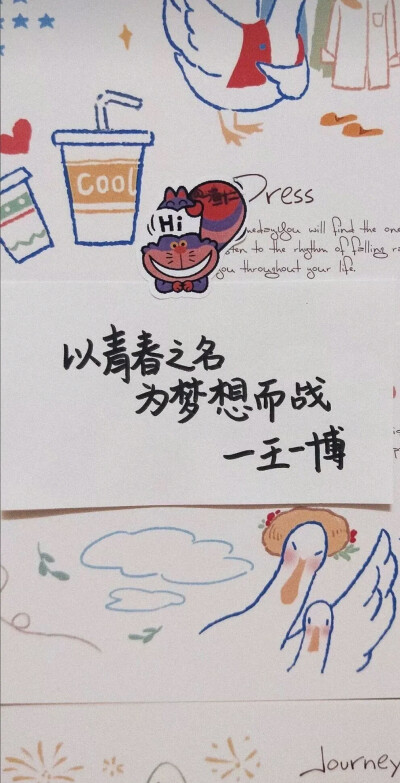 Cool
Hi
Dress
You will find the one
to the rhythm of falling
you throughout your life.
以青春之名
为梦想而战
一王一博
Journey